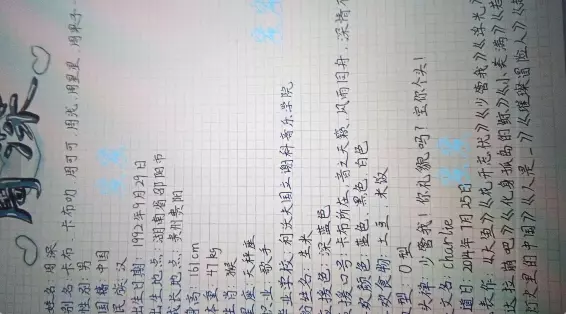 周深
姓名：周深
别名：卡布、卡布叻、周可可、周戊、周里里、周果子
性别：男
国籍：中国
民族：汉
出生日期：1992年9月29日
出生地点：湖南省邵阳市
成长地点：贵州贵阳
身高：161cm
体重：47kg
生肖：猴
星座：天秤座
职业：歌手
毕业学校：利沃夫国立谢科音乐学院
粉丝名：生米
应援色：深蓝色
应援口号：卡布所在，音之天籁，风雨同舟，深情不
喜欢颜色：蓝色、黑色、白色
喜欢食物：土豆、米饭
血型：O型
口头禅：少管我！你礼貌吗？宝你个头！
英文名：Charlie
出道日：2014年1月25日
代表作：《大鱼》《花开忘忧》《少管我》
达拉崩吧》《化身孤岛的鲸》《小美满》
历史里的中国》《人是_》《璀璨冒险人》